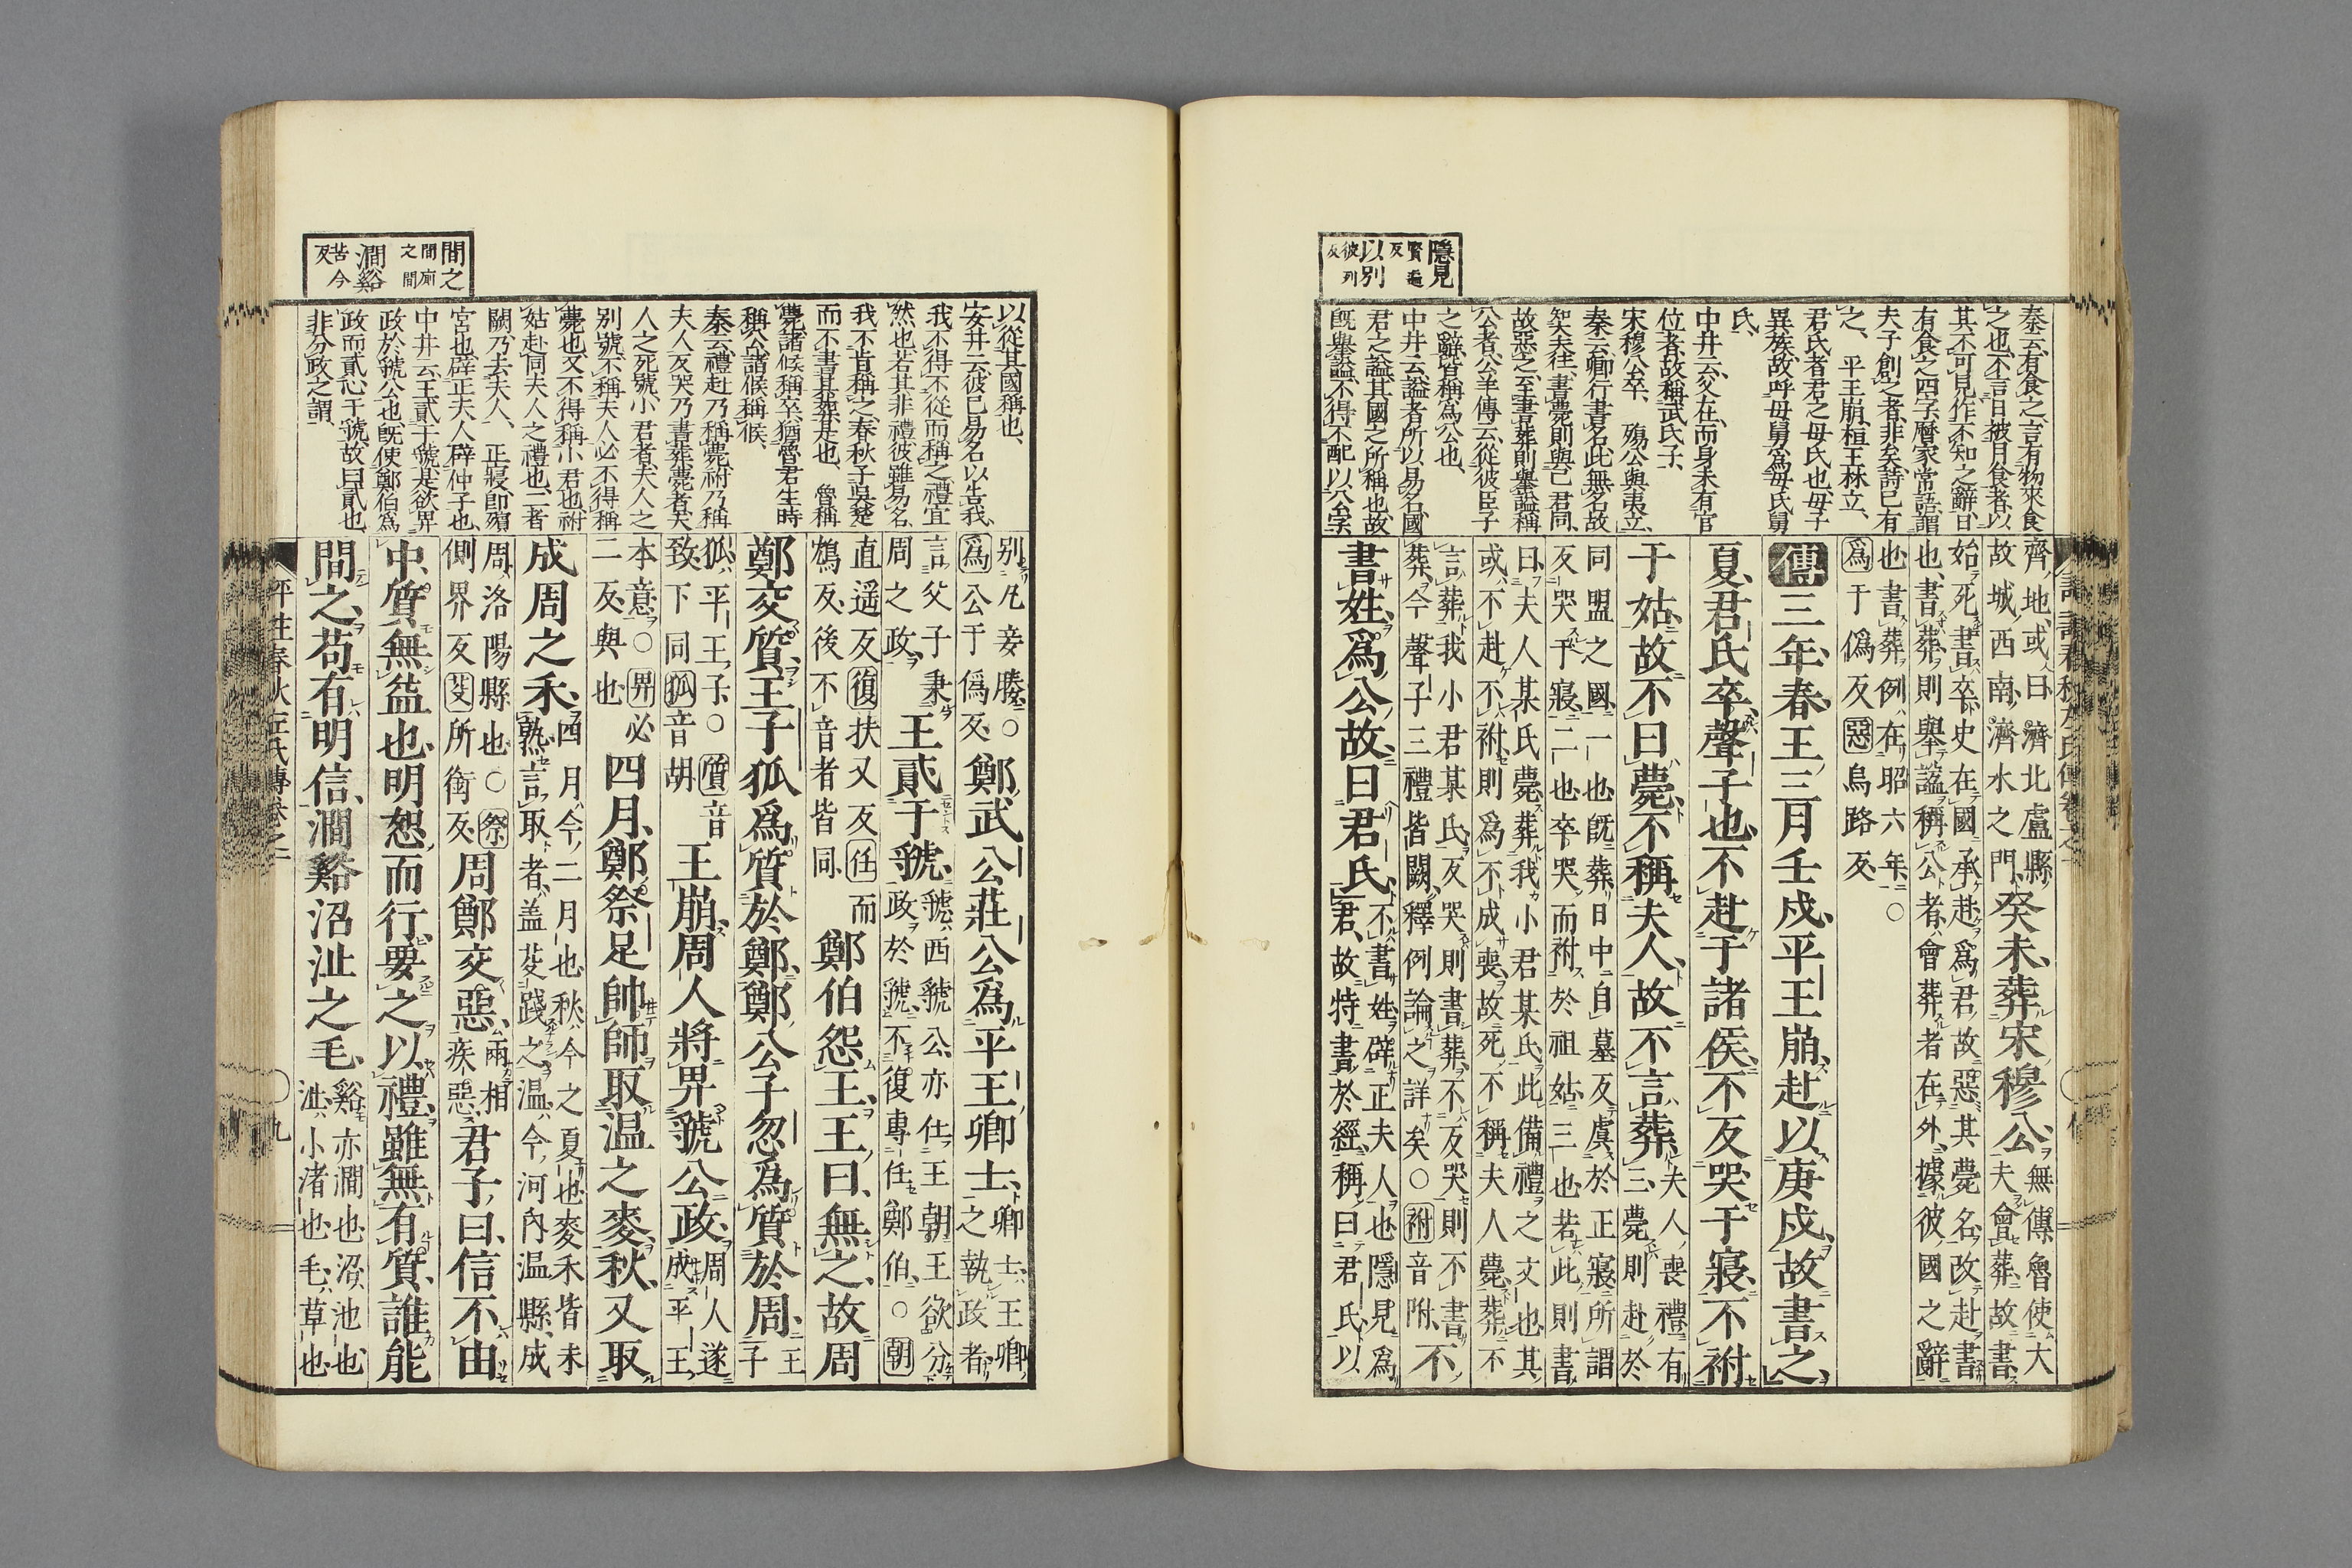 隱見
賢遍反
以別
彼列反
秦云有食之言有物來食
之也不言日被月食者以
其不可見作不知之辭日
有食之四字曆家常語謂
夫子創之者非矣詩已有
之、平王崩桓王林立、
君氏者君之母氏也毋子
異族故呼母舅爲母氏舅
氏、
中井云父在而身未有官
位者故稱武氏子、
宋穆公卒、殤公與夷立、
秦云卿行書名此無名故
知夫往書薨則與己君同
故惡之至書葬則舉謚稱
公者公羊傳云從彼臣子
之辭皆稱爲公也、
中井云謚者所以易名國
君之謚其國之所稱也故
既舉謚不得不配以公字
齊地、或曰濟北盧縣
故城西南濟水之門、癸未、葬宋穆公、無傳魯使大
夫會葬故書
始死書卒史在國承赴爲君故惡其薨名改赴書
也、書葬則舉謚稱公者會葬者在外據彼國之辭
也書葬例在昭六年○
爲于僞反惡烏路反
傳三年、春、王三月壬戌、平王崩、赴以庚戌、故書之、
夏、君氏卒、聲子也、不赴于諸侯、不反哭于寢、不祔
于姑、故不曰薨、不稱夫人、故不言葬、夫人喪禮有
三薨則赴於
同盟之國一也既葬日中自墓反虞於正寢所謂
反哭于寢二也卒哭而祔於祖姑三也若此則書
曰夫人某氏薨葬我小君某氏此備禮之文也其
或不赴不祔則爲不成喪故死不稱夫人薨葬不
言葬我小君某氏反哭則書葬不反哭則不書
葬今聲子三禮皆闕釋例論之詳矣○祔音附、不
書姓、爲公故、曰君氏、不書姓辟正夫人也隱見爲
君、故特書於經稱曰君氏以
間之
間廁之間
澗谿
苦今反
以從其國稱也、
安井云彼已易名以告我、
我不得不從而稱之禮宜
然也若其非禮彼雖易名、
我不肯稱之春秋于吳楚
而不書其葬是也、魯稱
薨諸侯稱卒猶魯君生時
稱公諸侯稱侯、
秦云禮赴乃稱薨祔乃稱
夫人反哭乃書葬薨者夫
人之死號小君者夫人之
別號不稱夫人必不得稱
薨也又不得稱小君也祔
姑赴同夫人之禮也二者
闕乃去夫人、正寢卽殯
宮也辟正夫人辟仲子也、
中井云王貳于虢是欲畀
政於虢公也旣使鄭伯爲
政而貳心于虢故曰貳也
非分政之謂、
別凡妾媵○
爲公于僞反、鄭武公莊公爲平王卿士、卿士王卿
之執政者
言父子秉
周之政王貳于虢、虢西虢公亦仕王朝王欲分
政於虢不復專任鄭伯、○朝
直遥反復扶又反任而
鴆反、後不音者皆同鄭伯怨王、王曰、無之、故周
鄭交質、王子狐爲質於鄭、鄭公子忽爲質於周、王
子
狐平王子○質音
致下同狐音胡王崩、周人將畀虢公政、周人遂
成平王
本意○畀必
二反與也四月、鄭祭足帥師取温之麥、秋、又取
成周之禾、四月今二月也秋今之夏也麥禾皆未
熟言取者蓋芟踐之温今河內温縣成
周洛陽縣也○祭
側界反芟所銜反周鄭交惡、兩相
疾惡君子曰、信不由
中、質無益也、明恕而行、要之以禮、雖無有質、誰能
間之、苟有明信、澗谿沼沚之毛、谿亦澗也沼池也
沚小渚也毛草也